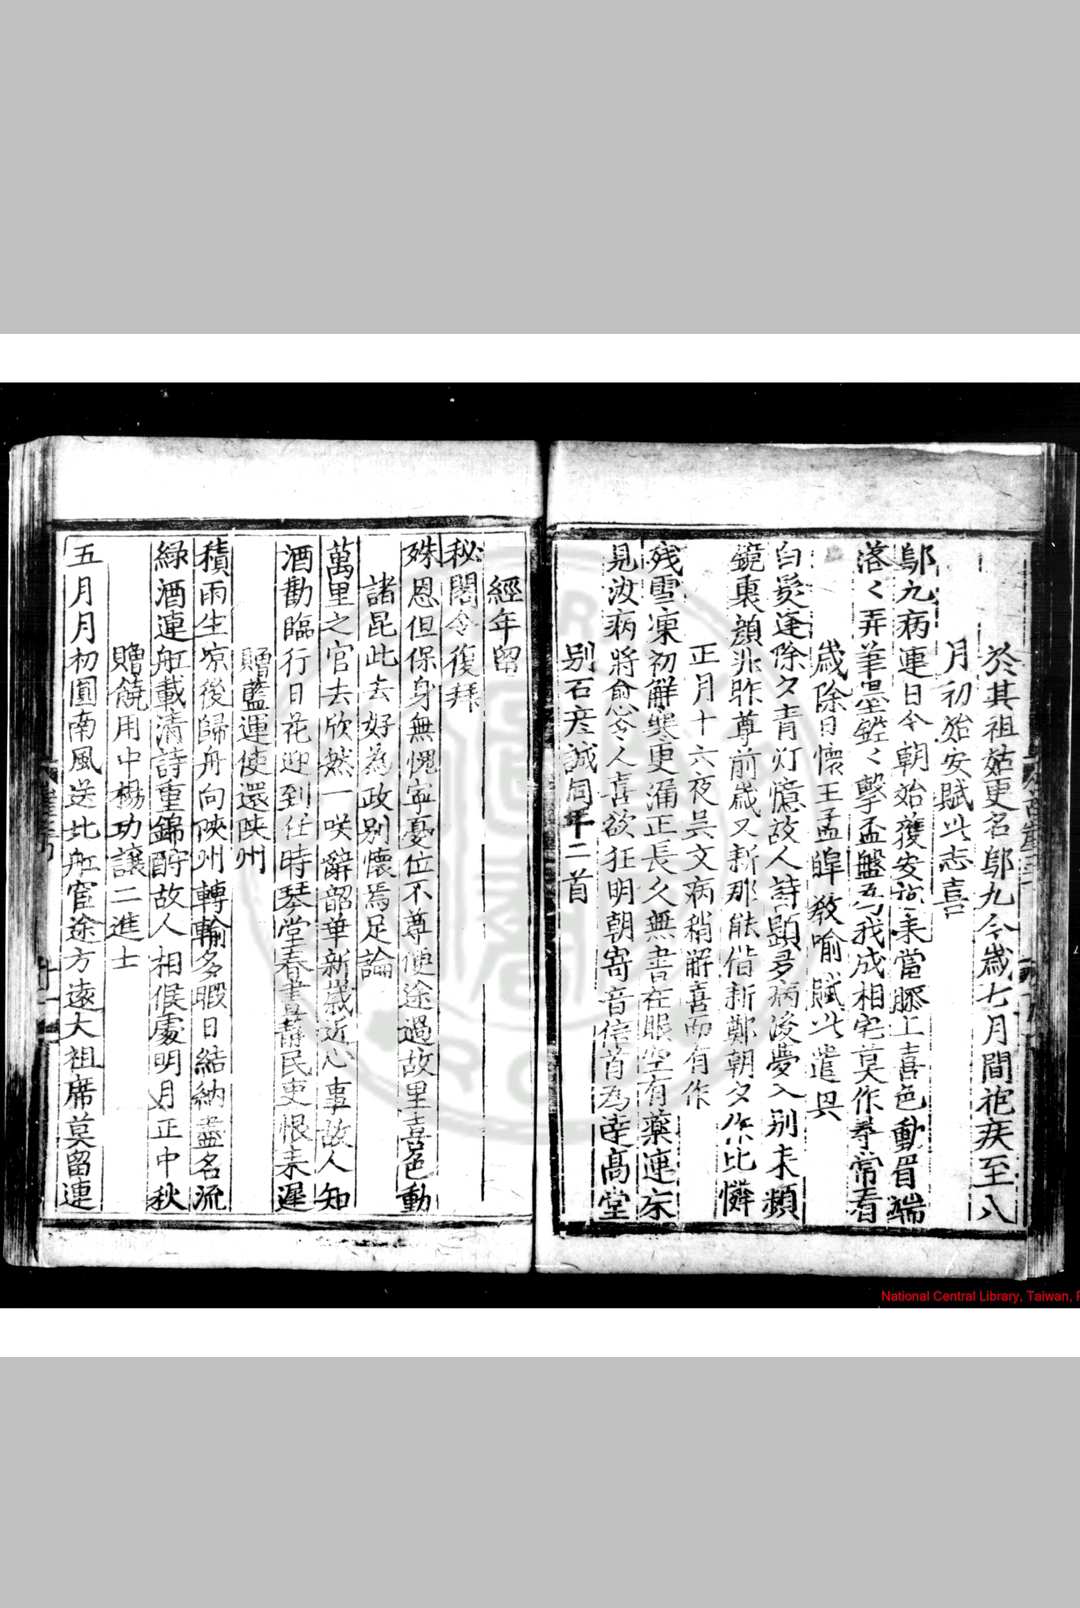 於其祖姑更名鄔九今歲七月間疮疾至八
月初始安賦此志喜
鄔九病連日今朝始獲安訪来當膝上喜色動眉端
落々弄筆墨鏗々擊盃盤
我成相宅莫作尋常看
歲除日懷王孟暐教喻賦此遣興
白髮逢除夕青灯憶故人詩顕多病後夢入别来頻
鏡裏顔非昨尊前歲又新那能偕新鄭朝夕作比憐
正月十六夜吴文病稍解喜而有作
残雪凍初解寒更漏正長久無書在眼空有藥連床
見汝病將愈令人喜欲狂明朝寄音信首為達髙堂
别石彦誠同年二首
經年留
秘閣今復拜
殊恩但保身無愧寧憂位不尊使途過故里喜色動
諸昆此去好為政别懷焉足論
萬里之官去欣然一咲辭韶華新歲近心事故人知
酒勸臨行日花迎到任時琴堂春晝静民吏恨来遲
贈藍運使還陕州
積雨生凉後歸舟向陜州轉輸多暇日結納盡名流
緑酒連舡載清詩重錦酧故人相候處明月正中秋
贈饒用中楊功讓二進士
五月月初圓南風送北舡宦途方遠大祖席莫留連
十一
National Central Library, Taiwan,